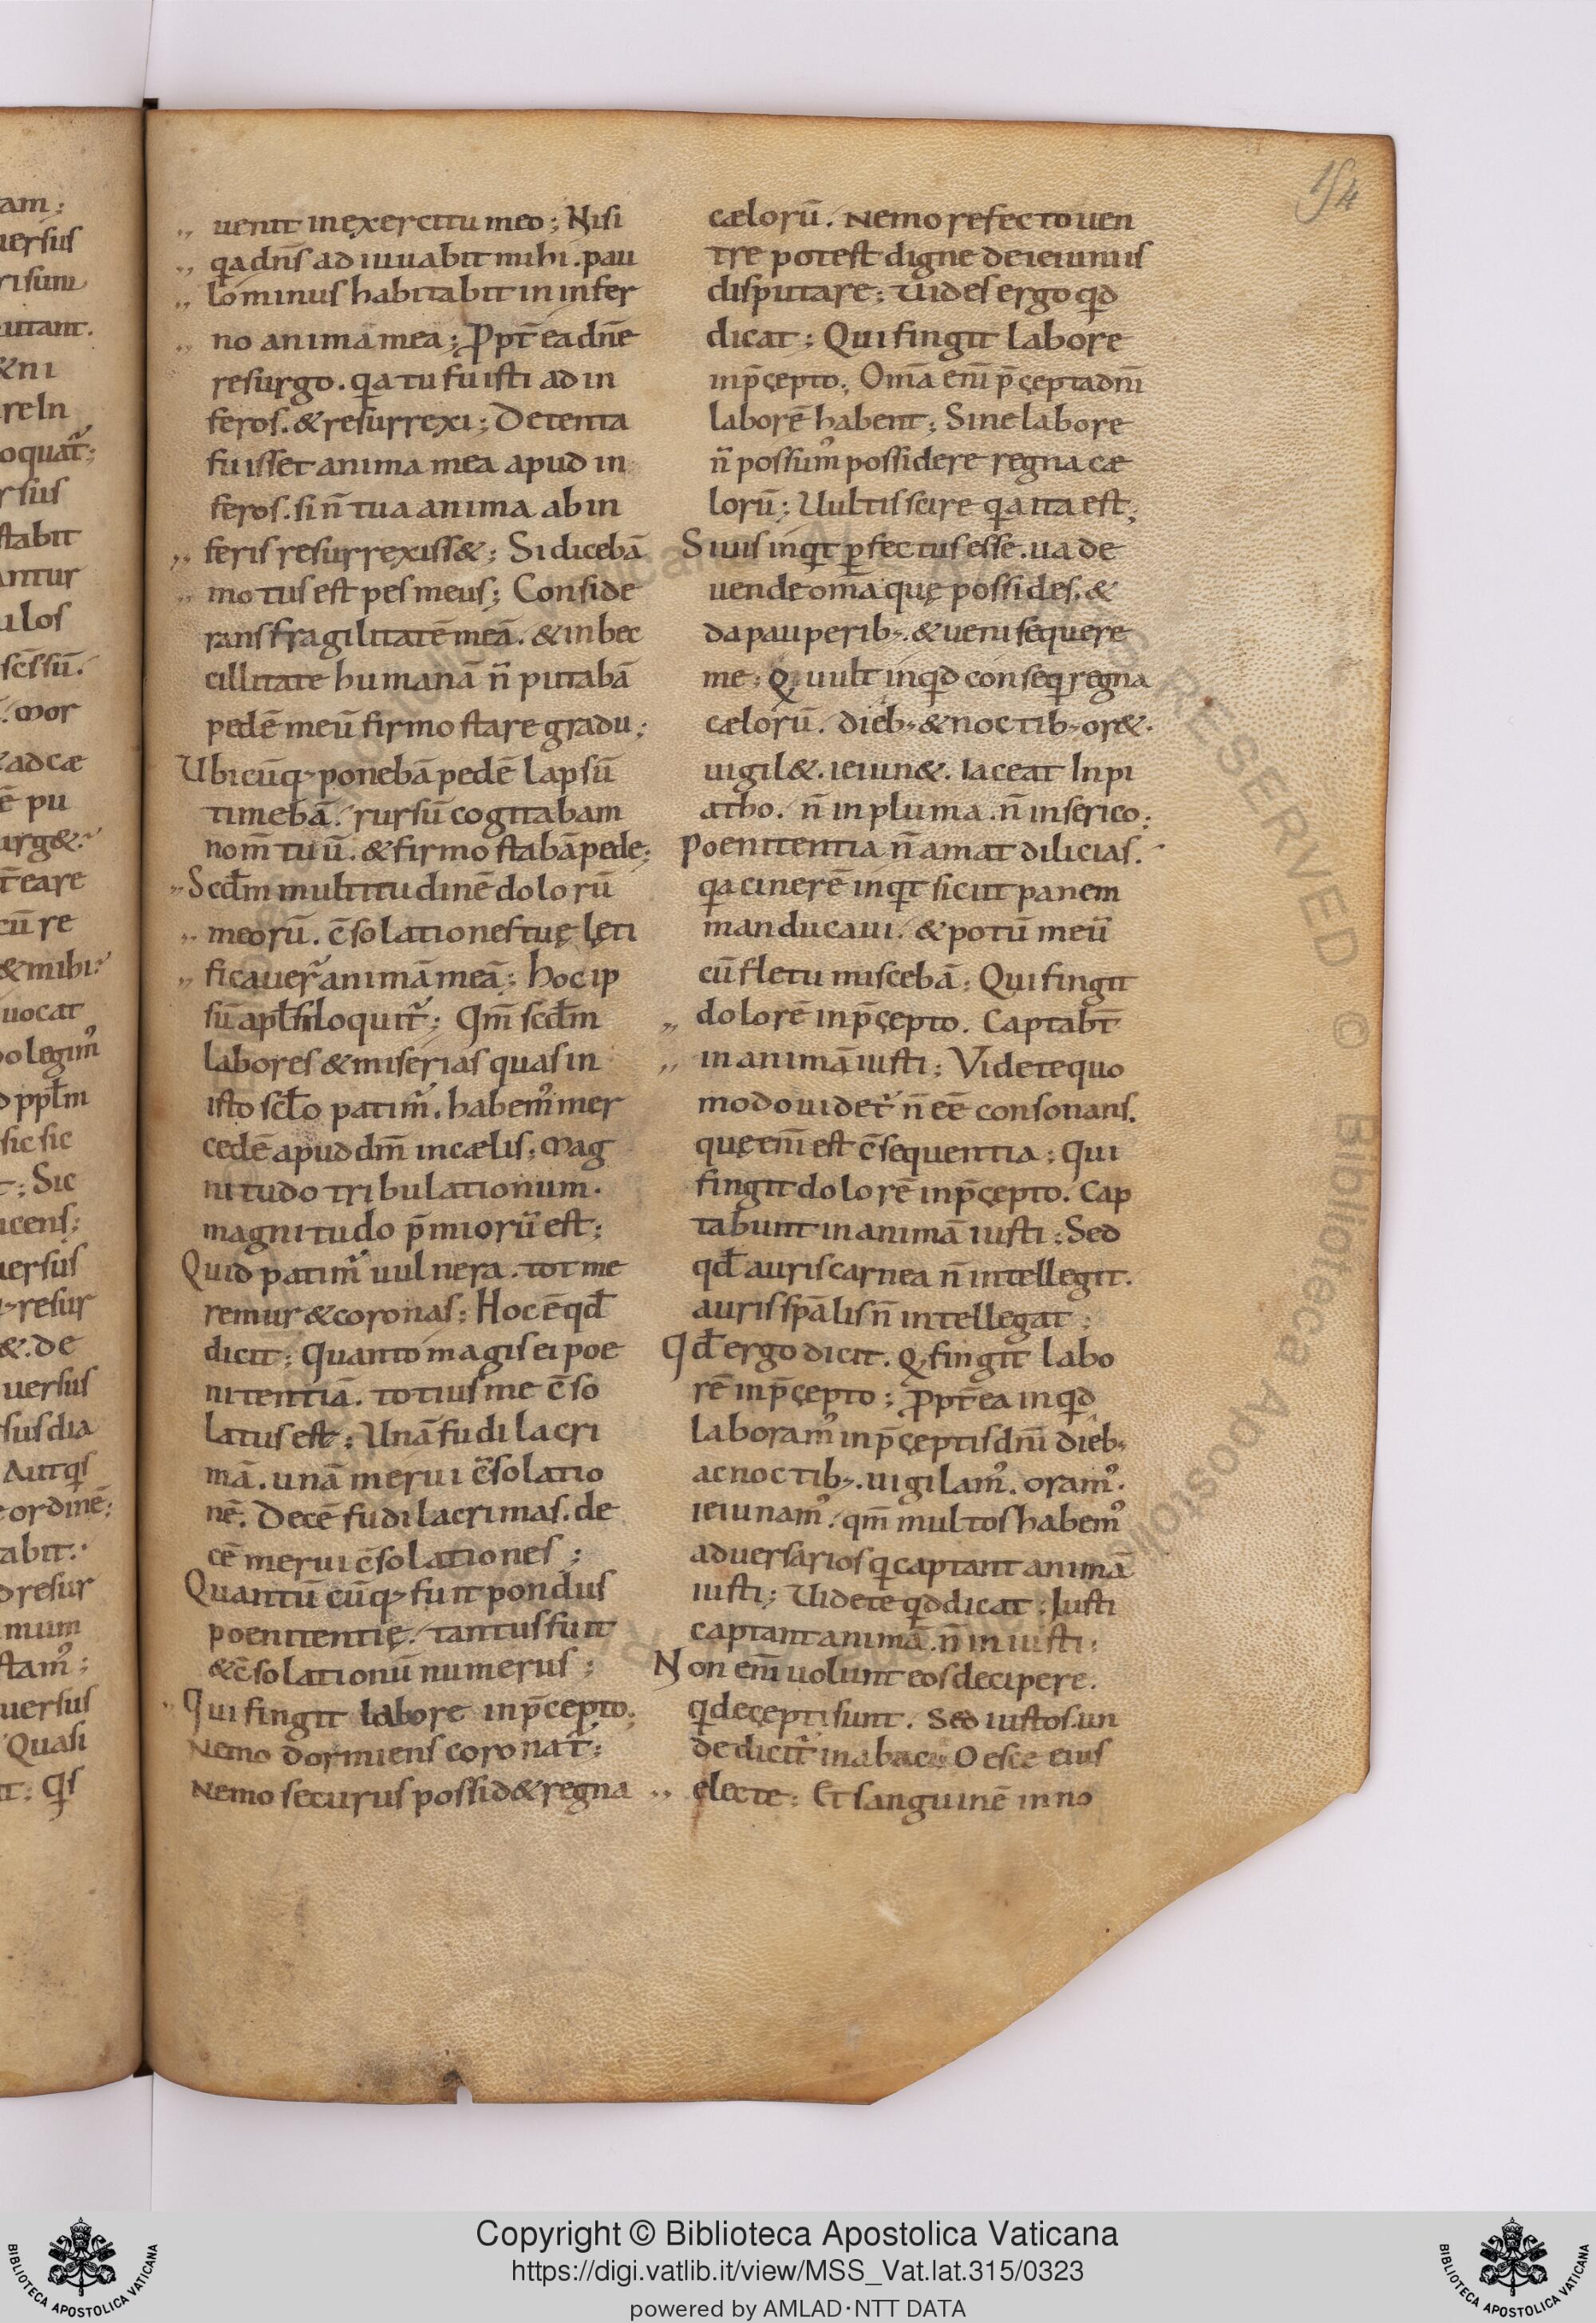 154
uenit in exercitu meo; Nisi
qa dn̄s adiuuabit mihi. pau
lo minus habitabit in infer
no anima mea; Ppt̄ ea dn̄e
resurgo. qa tu fuisti ad in
feros. & resurrexi; Detenta
fuisset anima mea apud in
feros. si n̄ tua anima ab in
feris resurrexiss&; Si dicebā
motus est pes meus; Conside
rans fragilitatē meā. & inbec
cillitate humanā n̄ putabā
pedē meū firmo stare gradu;
Ubicūq; ponebā pedē lapsū
timebā. rursū cogitabam
nom̄ tuū. & firmo stabā pede;
Scd̄m multitudinē dolorū
meorū. c̄solationes tuę lęti
ficauer̄ animā meā; hoc ip
sū apl̄s loquit̄; Qm̄ scd̄m
labores & miserias quas in
isto scl̄o patim̄. habem᾿ mer
cedē apud dm̄ in cælis; Mag
nitudo tribulationum.
magnitudo p̄miorū est;
Quid patim̄ uulnera. tot me
remur & coronas; Hoc ē qd̄
dicit; Quanto magis ei poe
nitentiā. totius me c̄so
latus est; Unā fudi lacri
mā. unā merui c̄solatio
nē. Decē fudi lacrimas. de
cē merui c̄solationes;
Quantūcūq; fuit pondus
poenitentię. tantus fuit
& c̄solationū numerus;
Qui fingit labore in p̄cepto;
Nemo dormiens coronat̄;
Nemo securus possid& regna
cælorū. Nemo refecto uen
tre potest digne de ieiuniis
disputare; Uides ergo qd
dicat; Qui fingit labore
in p̄cępto; Om̄a enī p̄cępta dn̄i
laborē habent; Sine labore
n̄ possum᾿ possidere regna cæ
lorū; Uultis scire qa ita est;
Si uis inqt pfectus esse. uade
uende om̄a quę possides. &
da pauperib;. & ueni sequere
me; Q uult inqd conseq regna
cælorū. dieb; & noctib; or&.
uigil&. ieiun&. Iaceat In pi
atho. n̄ in pluma. n̄ in serico;
Poenitentia n̄ amat dilicias.
qa cinerē inqt sicut panem
manducaui. & potū meū
cū fletu miscebā; Qui fingit
dolorē in p̄cępto. Captabt̄
in animā iusti; Videte quo
modo uidet̄ n̄ eē consonans.
quę enī est c̄sequentia; Qui
fingit dolorē in p̄cępto. Cap
tabunt in animā iusti; Sed
qd̄ auris carnea n̄ intellegit.
auris sp̄alis n̄ intellegat;
Qd̄ ergo dicit. Q fingit labo
rē in p̄cępto; Ppt̄ ea inqd
laboram᾿ in p̄cęptis dn̄i dieb;
ac noctib;. uigilam᾿. oram᾿.
ieiunam᾿. qm̄ multos habem᾿
aduersarios q captant animā
iusti; Uidete qd dicat; Iusti
captant animā. n̄ iniusti;
Non enī uolunt eos decipere.
q decępti sunt. Sed iustos. un
de dicit̄ in abacu. Oesce eius
electe; Et sanguinē inno
Copyright © Biblioteca Apostolica Vaticana
https://digi.vatlib.it/view/MSS_Vat.lat.315/0323
powered by AMLAD·NTT DATA